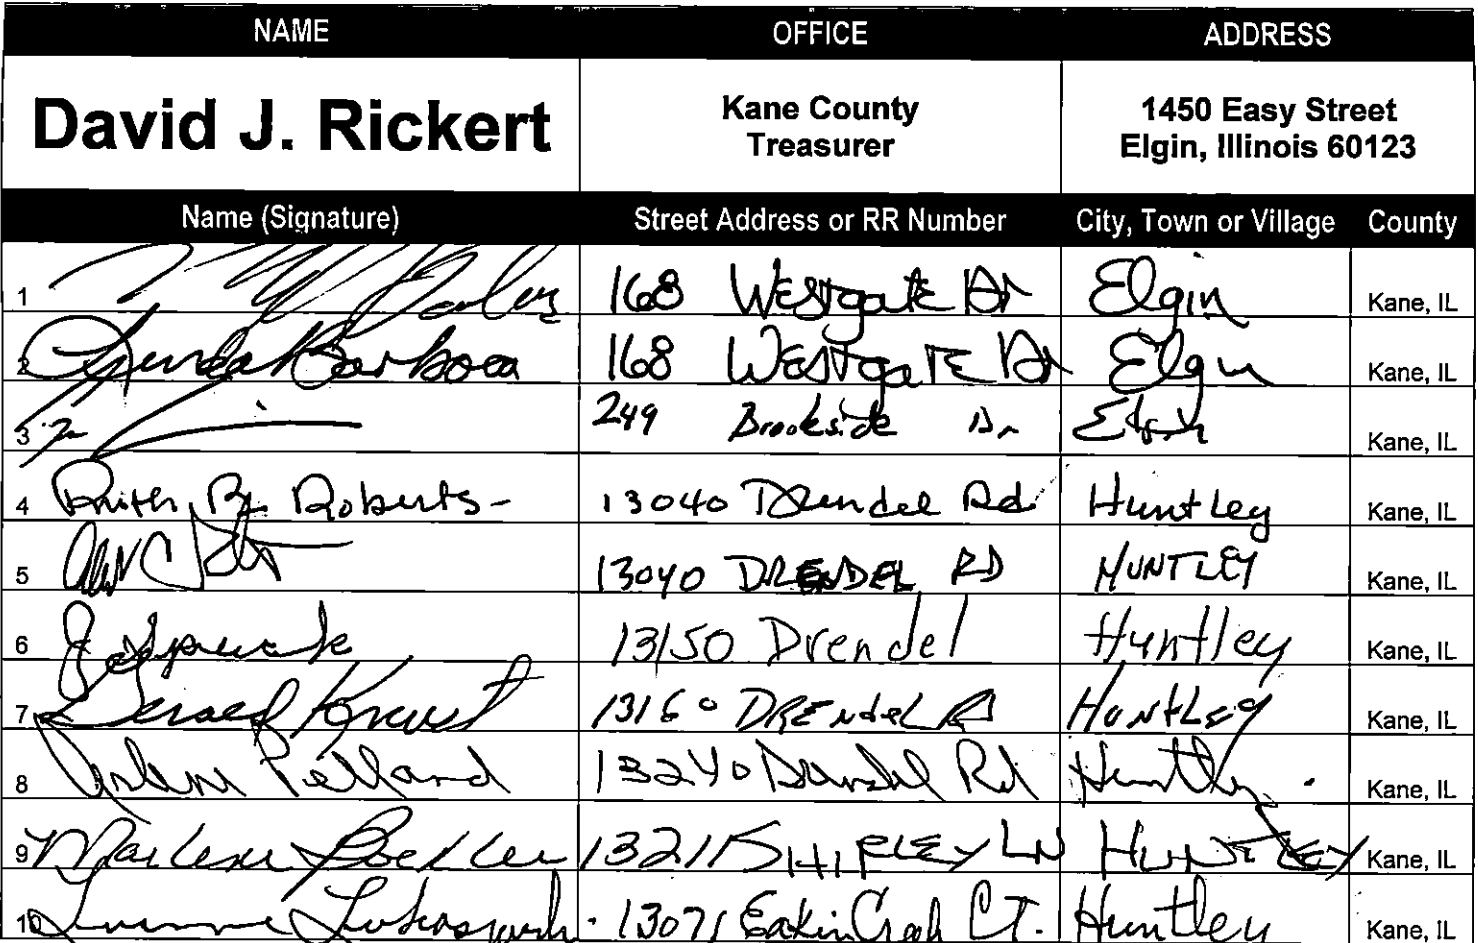 NAME OFFICE ADDRESS
David J. Rickert Kane County Treasurer 1450 Easy Street Elgin, Illinois 60123
Name (Signature) Street Address or RR Number City, Town or Village County
1 168 Westgate Dr Elgin Kane, IL
2 Barbosa 168 Westgate Dr Elgin Kane, IL
3 249 Brookside Dr Elgin Kane, IL
4 Roberts- 13040 Drendel Rd Huntley Kane, IL
5 13040 DRENDEL RD HUNTLEY Kane, IL
6 13150 Drendel Huntley Kane, IL
7 13160 DRENdEL Rd HuNtLey Kane, IL
8 Pelland 13240 Drendel Rd Huntley Kane, IL
9 Marlene 13211 SHIPLEY LN HUNTLEY Kane, IL
10 13071 Eakin Creek CT. Huntley Kane, IL